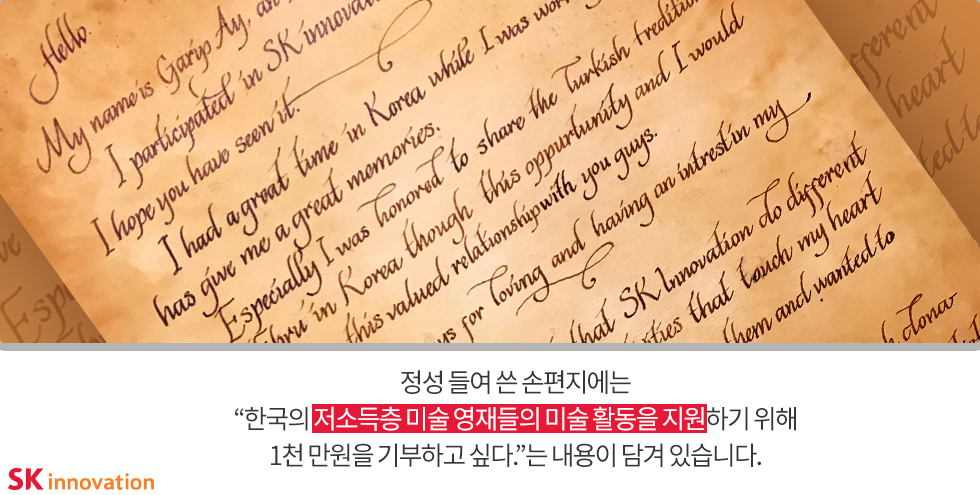 Hello.
My name is Garip Ay, an
I participated in SK innovat
I hope you have seen it.
I had a great time in Korea while I was wor
has give me a great memories.
Especially I was honored to share the Turkish tradition
bru in Korea though this oppurtunity and I would
this valued relationship with you guys.
us for loving and having an intrest in my
that SK Innovation do different
rties that touch my heart
them and wanted to
h dona
fferent
heart
ted to
ve
Esp
정성 들여 쓴 손편지에는
“한국의 저소득층 미술 영재들의 미술 활동을 지원하기 위해
1천 만원을 기부하고 싶다.”는 내용이 담겨 있습니다.
SK innovation